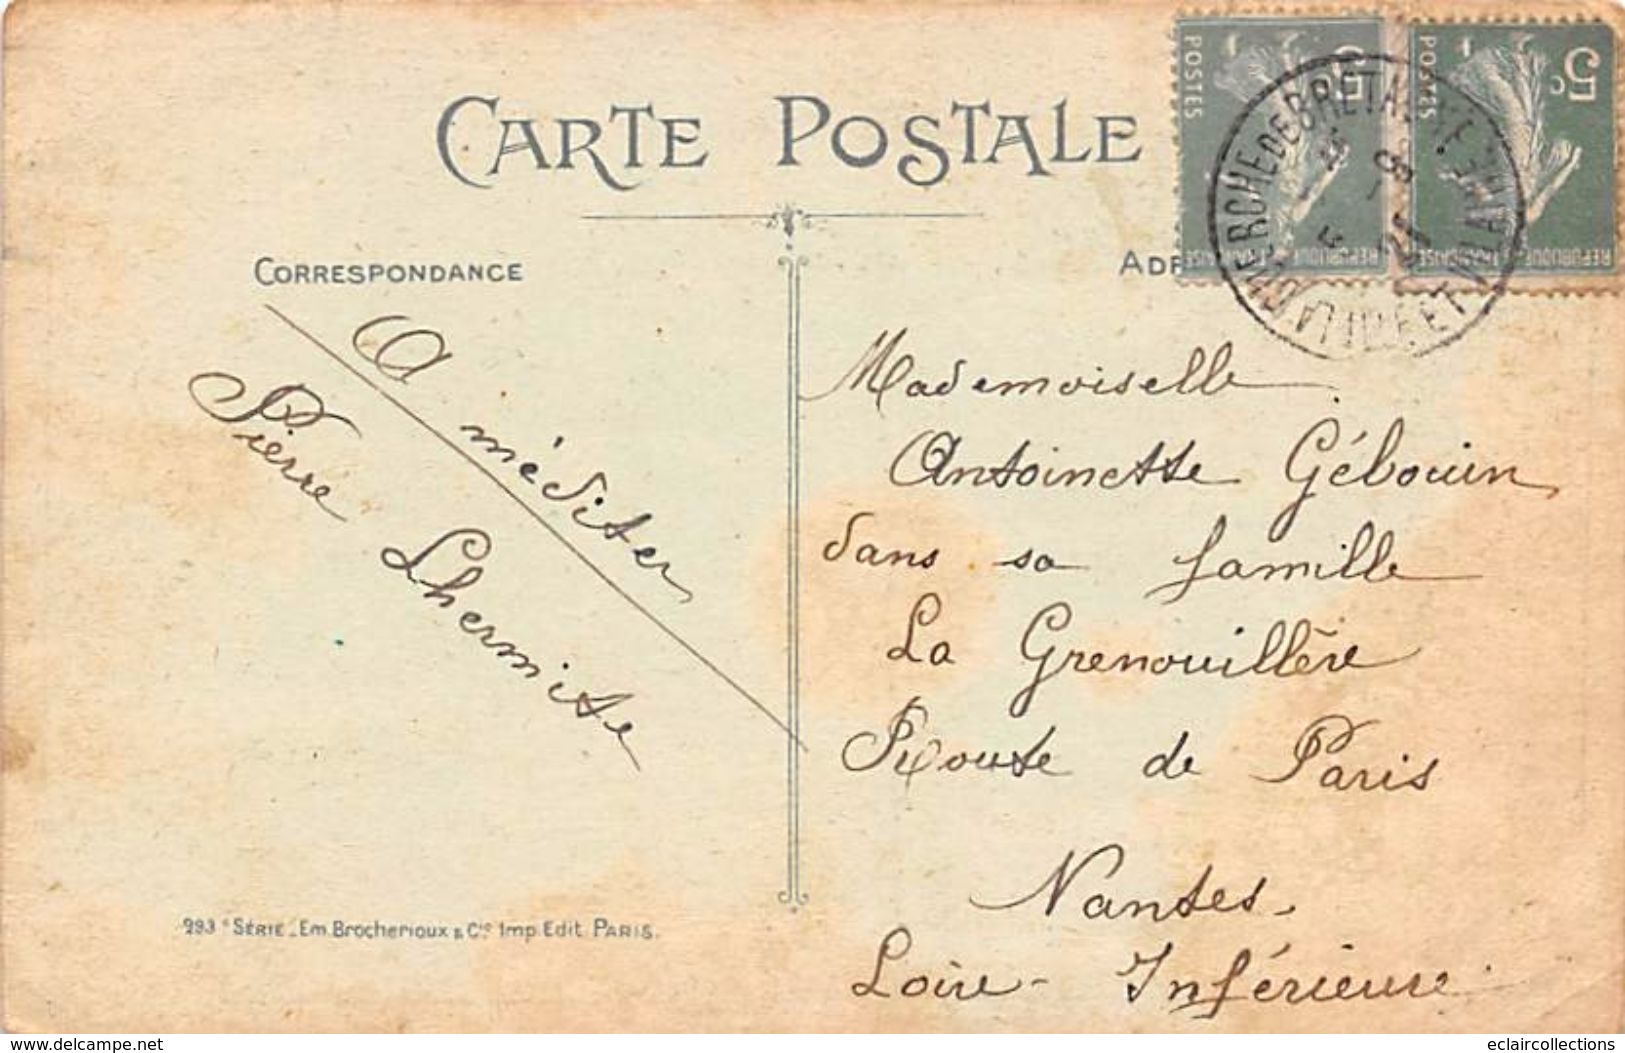 CARTE POSTALE
CORRESPONDANCE
A méditer
Pierre Lhermite
293e SÉRIE _ Em. Brocherioux & Cie Imp. Edit. PARIS.
POSTES
5c
RÉPUBLIQUE FRANÇAISE
POSTES
5c
RÉPUBLIQUE FRANÇAISE
GUERCHE DE BRETAGNE
ILLE ET VILAINE
Mademoiselle
Antoinette Gébouin
dans sa famille
La Grenouillère
Route de Paris
Nantes.
Loire-Inférieure
delcampe.net
eclaircollections